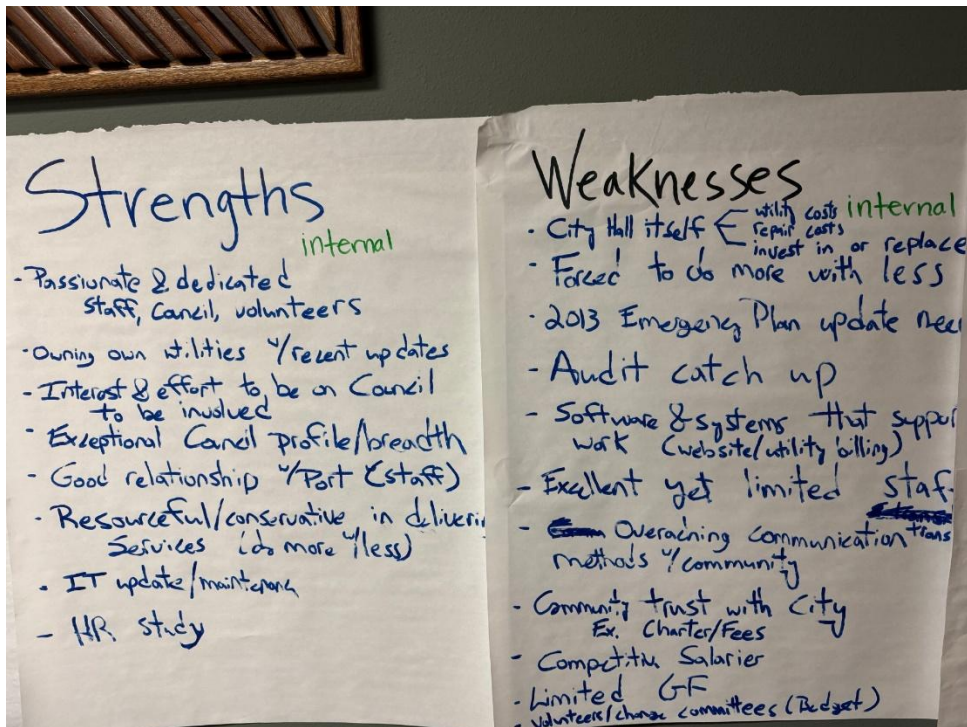 Strengths
internal
- Passionate & dedicated
staff, Council, volunteers
- Owning own utilities w/recent updates
- Interest & effort to be on Council
to be involved
- Exceptional Council profile/breadth
- Good relationship w/Port (staff)
- Resourceful/conservative in deliverin
Services (do more w/less)
- IT update/maintenance
- HR study
Weaknesses
internal
- City Hall itself < utility costs
repair costs
invest in or replace
- Forced to do more with less
- 2013 Emergency Plan update nee
- Audit catch up
- Software & systems that suppor
work (website/utility billing)
- Excellent yet limited staf
- Overarching communication trans
methods w/community
- Community trust with City
Ex. Charter/Fees
- Competitive Salaries
- Limited GF
- Volunteers/change committees (Budget)